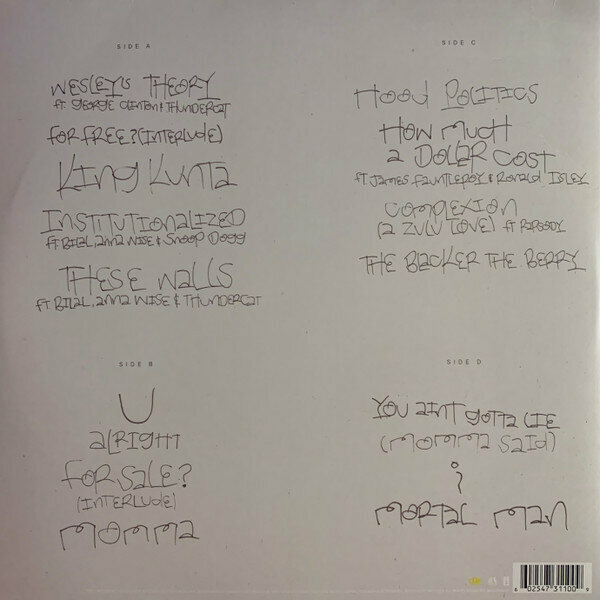 SIDE A
WESLEY'S THEORY
ft. GEORGE CLINTON & THUNDERCAT
FOR FREE? (INTERLUDE)
KING KUNTA
INSTITUTIONALIZED
ft. BILAL, anna WISE & SNOOP DOGG
THESE WALLS
ft. BILAL, anna WISE & THUNDERCAT
SIDE B
U
alRIGHT
FOR SALE?
(INTERLUDE)
MOMMA
SIDE C
HOOD POLITICS
HOW MUCH
a DOLLAR COST
ft. JAMES FAUNTLEROY & RONALD ISLEY
COMPLEXION
(a ZULU LOVE) ft RAPSODY
THE BLACKER THE BERRY
SIDE D
YOU aINT GOTTA LIE
(MOMMA SAID)
i
MORTAL MAN
6 02547 31100 9